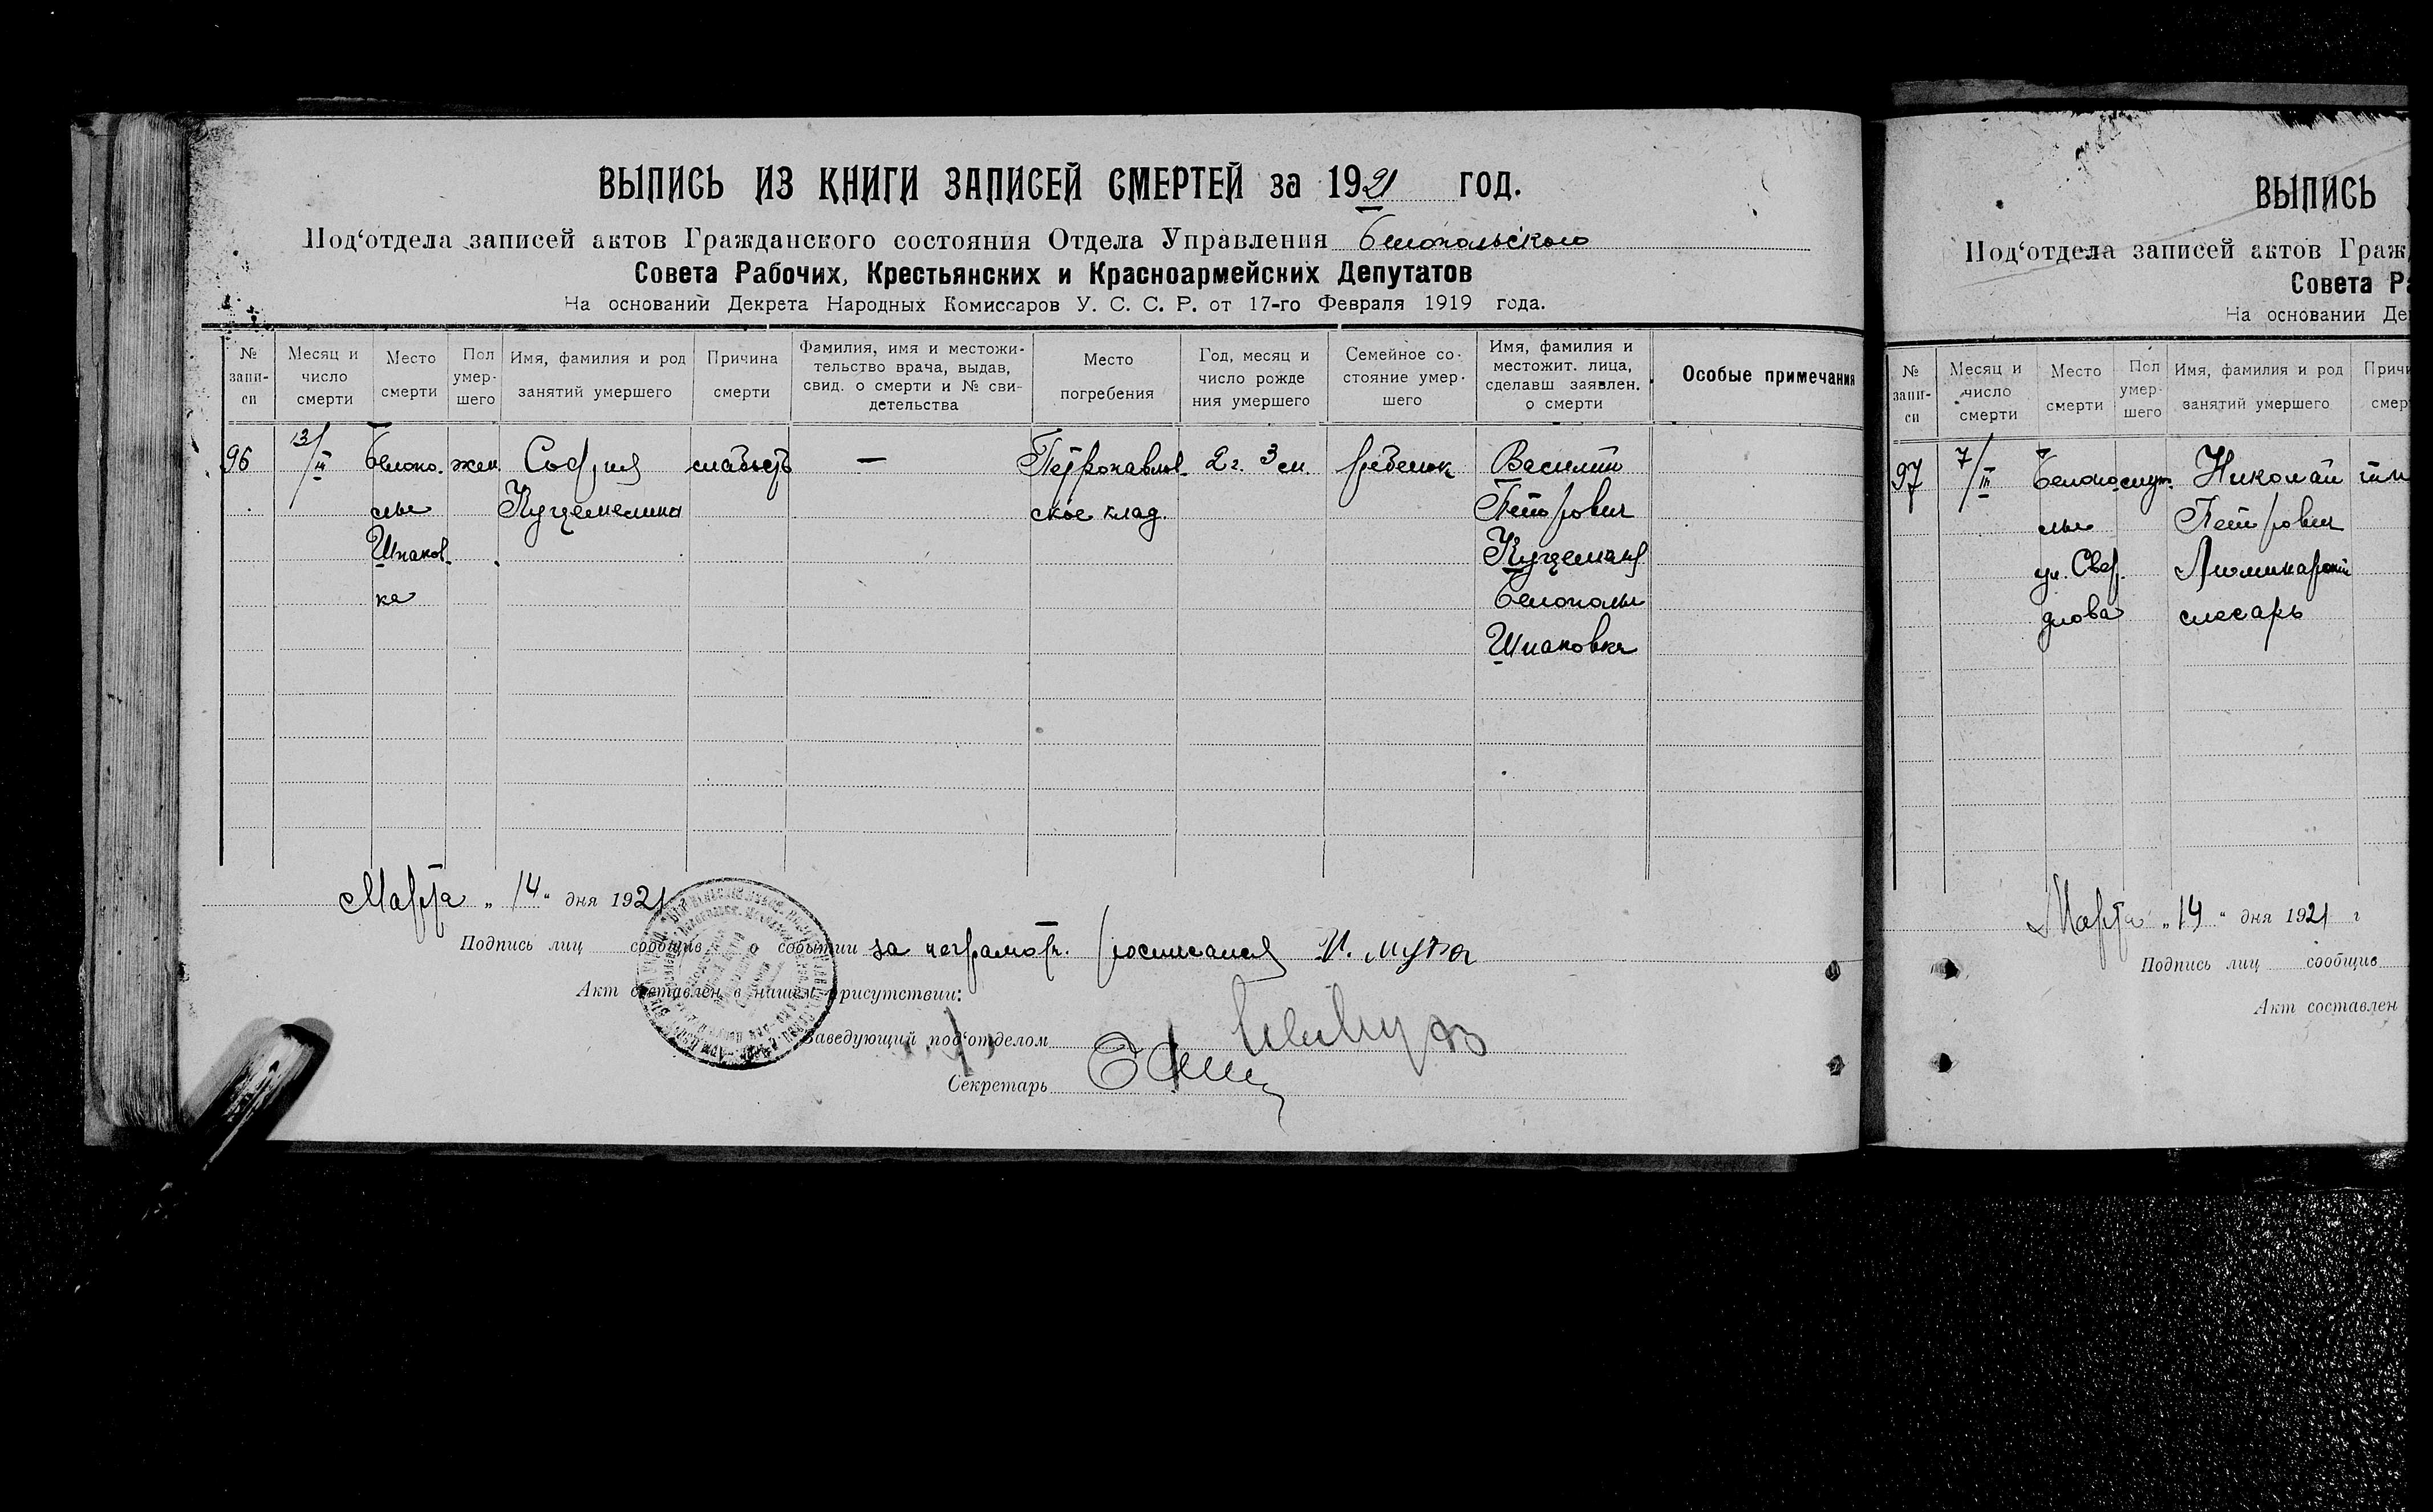 ВЫПИСЬ ИЗ КНИГИ ЗАПИСЕЙ СМЕРТЕЙ за 1921 год.
Под‘отдела записей актов Гражданского состояния Отдела Управления Белопольского
Совета Рабочих, Крестьянских и Красноармейских Депутатов
На основании Декрета Народных Комиссаров У. С. С. Р. от 17-го Февраля 1919 года.
№ запи- си
Месяц и число смерти
Место смерти
Пол умер- шего
Имя, фамилия и род занятий умершего
Причина смерти
Фамилия, имя и местожи- тельство врача, выдав, свид. о смерти и № сви- детельства
Место погребения
Год, месяц и число рожде ния умершего
Семейное со- стояние умер- шего
Имя, фамилия и местожит. лица, сделавш заявлен. о смерти
Особые примечания
96 13/III Белопо. жен София слабость — Петропавлов 2 г. 3 м. ребенок Василий
лье ское клад. Петрович
Шпаков
ка Белополье
Шпаковка
Марта „ 14 “ дня 1921
Подпись лиц сообщив о событии за неграмотн. росписался И.
Акт составлен в нашем присутствии:
Заведующий под‘отделом
Секретарь
ВЫПИСЬ
Под‘отдела записей актов Граж
Совета Ра
На основании Де
№ запи- си
Месяц и число смерти
Место смерти
Пол умер- шего
Имя, фамилия и род занятий умершего
Причи смер
97 7/III Белопо муж. Николай
лье Петрович
ул. Свер
длова слесарь
Марта „ 14 “ дня 1921 г
Подпись лиц сообщив
Акт составлен